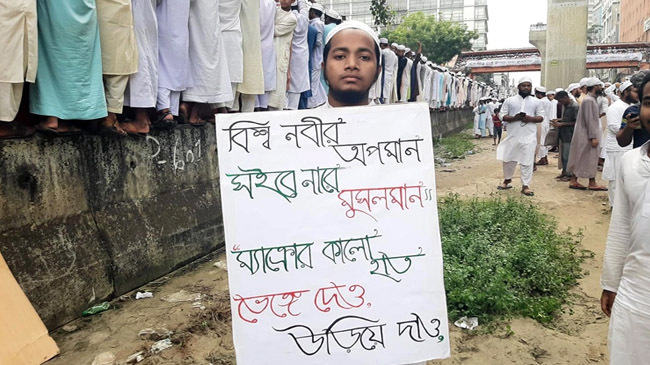 বিশ্ব নবীর অপমান
সইবে নারে মুসলমান"
"ম্যাক্রোর কালো হাত
ভেঙ্গে দেও,
উড়িয়ে দাও,